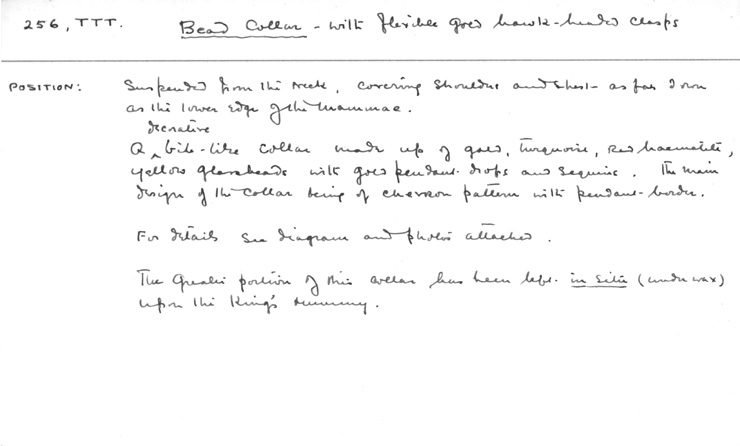 256, TTT. Bead Collar - with flexible gold hawk-headed clasps
POSITION: Suspended from the neck, covering shoulders and chest - as far down
as the lower edge of the mammae.
decorative
A ^ bib-like collar made up of gold, turquoise, red haematite,
yellow glass beads with gold pendant-drops and sequins. The main
design of the collar being of chevron pattern with pendant-border.
For details see diagram and photos attached.
The greater portion of this collar has been left in situ (under wax)
upon the King's mummy.